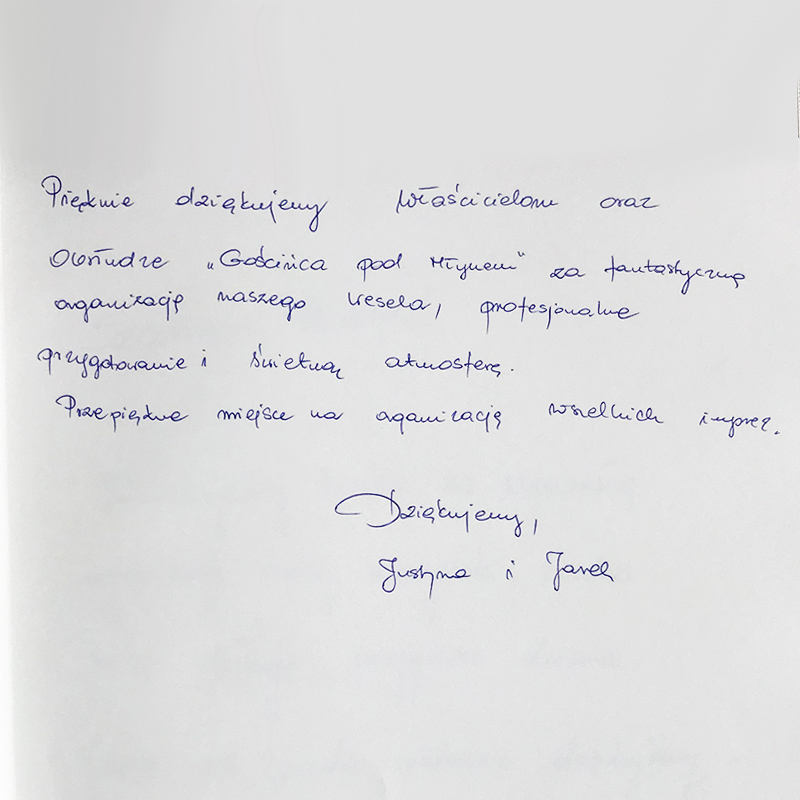 Pięknie dziękujemy Właścicielom oraz
Obsłudze „Gościńca pod Młynem" za fantastyczną
organizację naszego wesela, profesjonalne
przygotowanie i świetną atmosferę.
Przepiękne miejsce na organizację wszelkich imprez.
Dziękujemy,
Justyna i Jarek